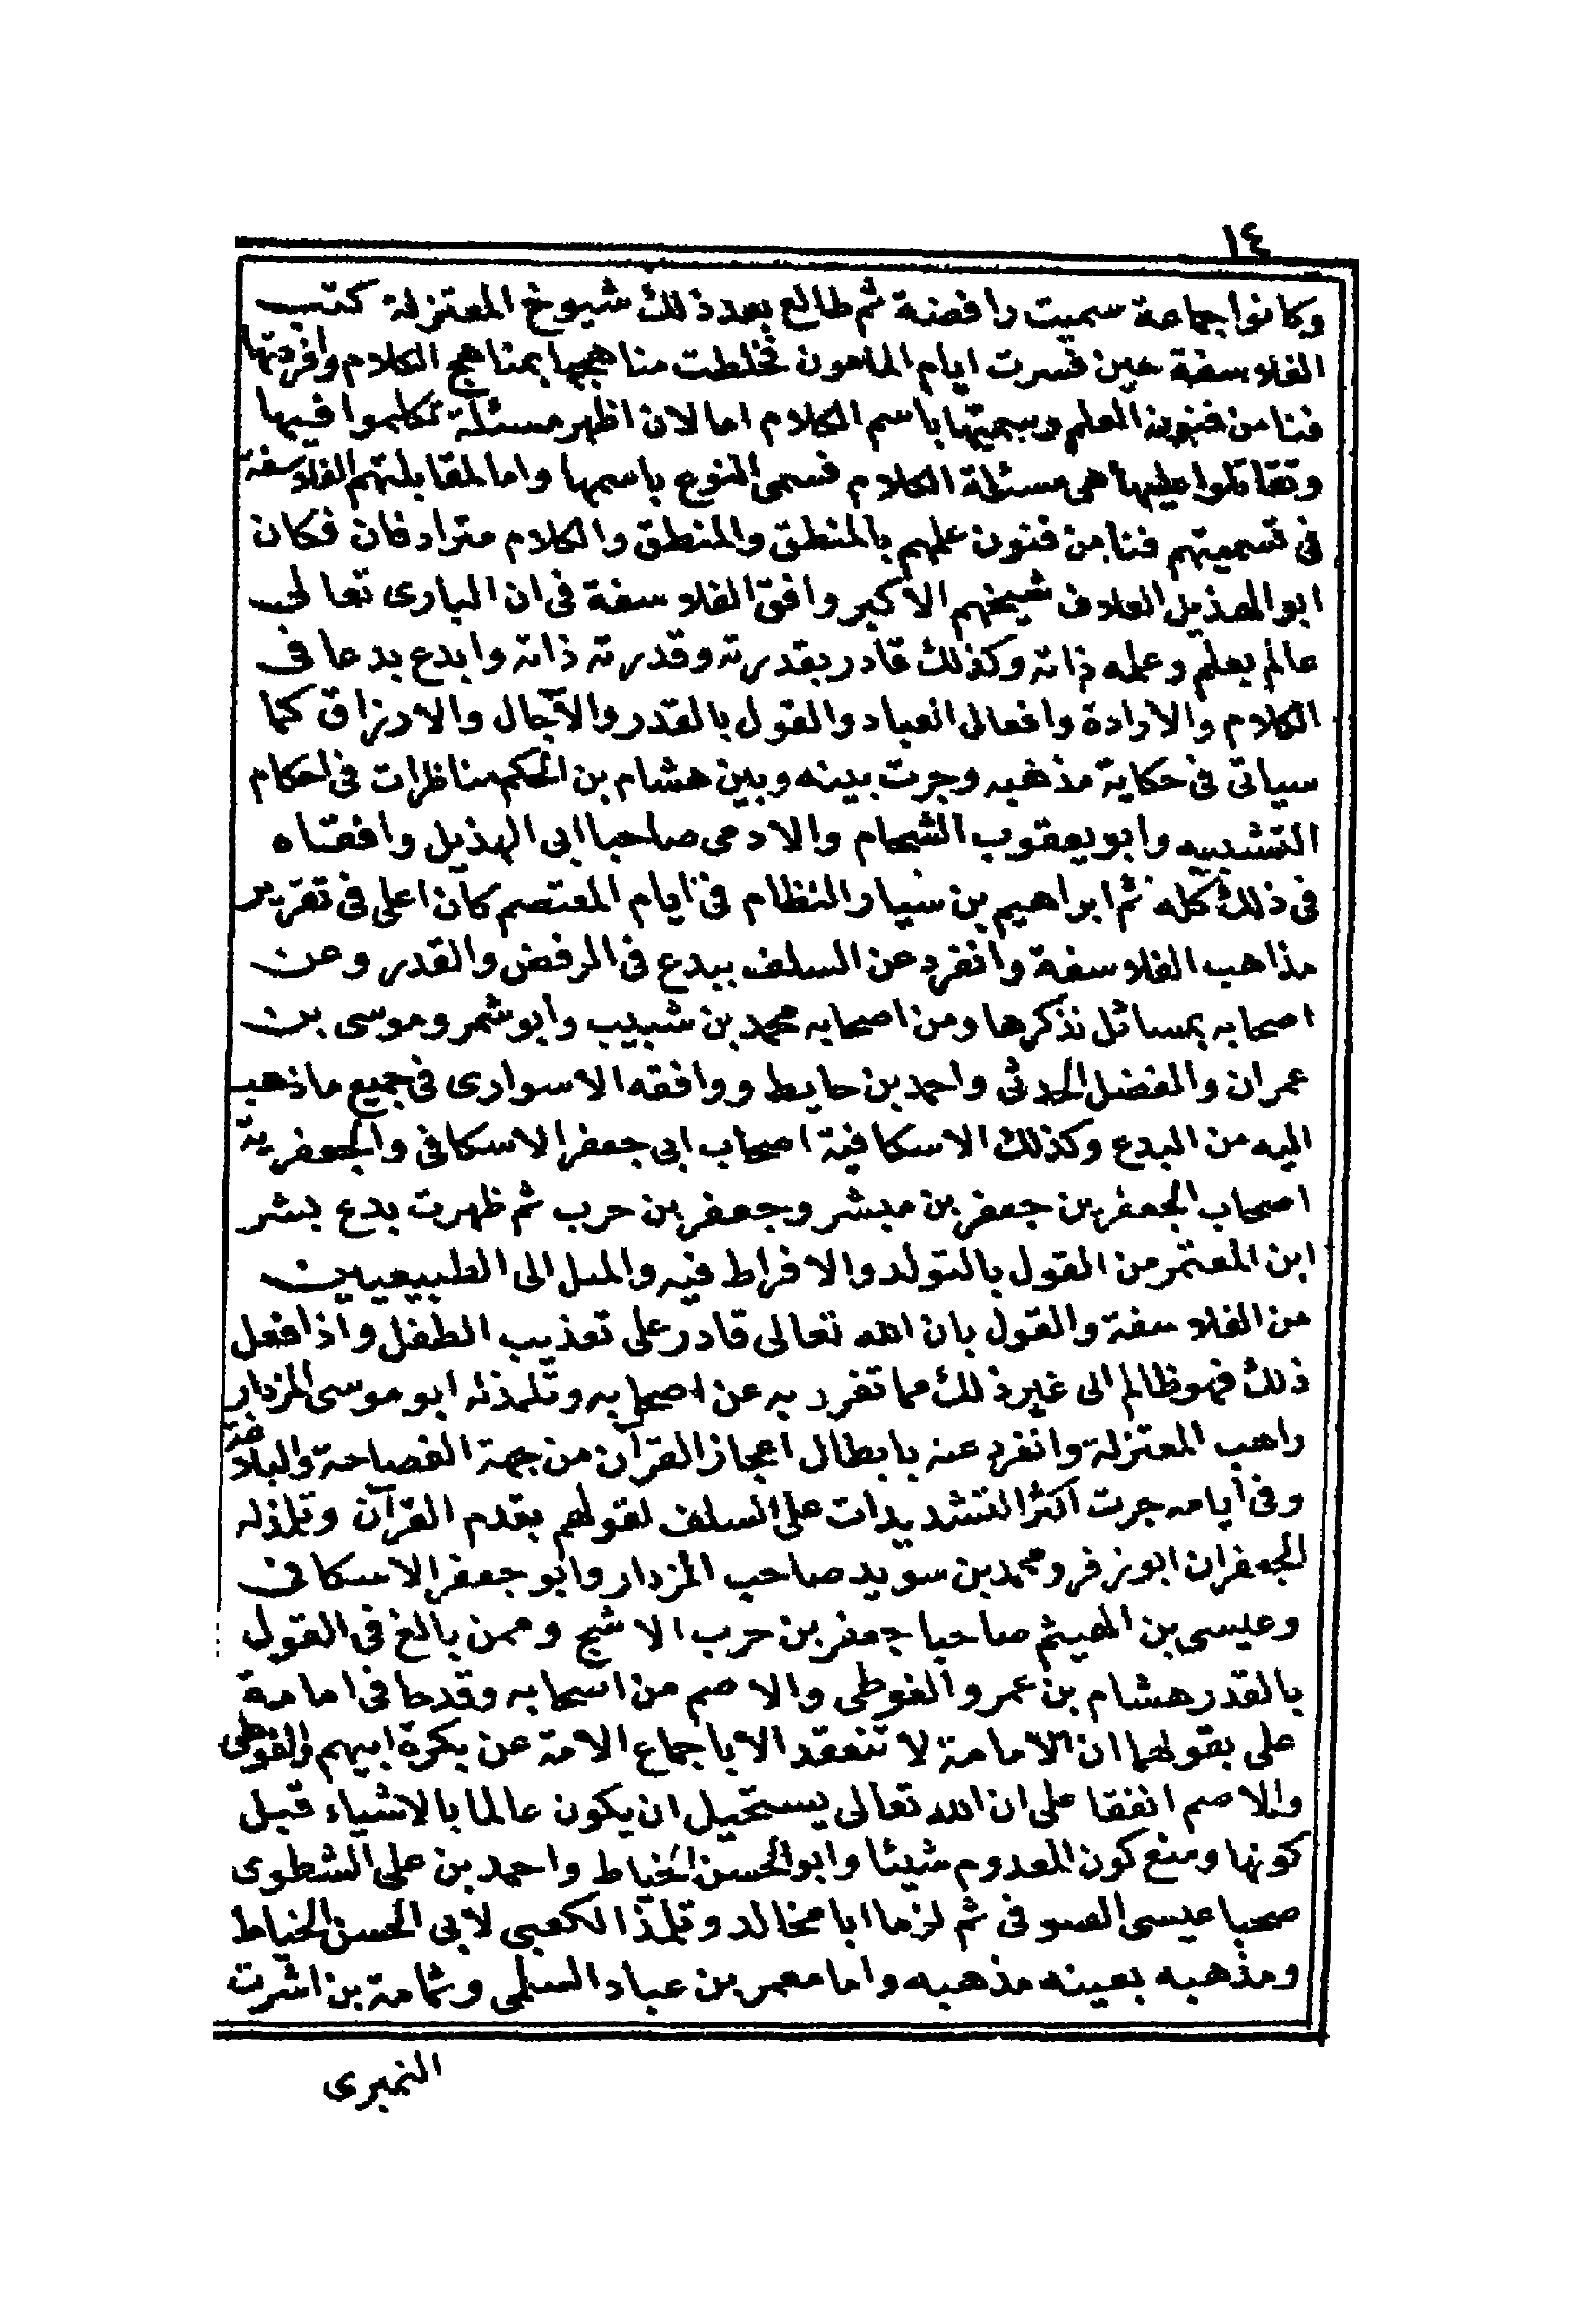 ١٤
وكانوا جماعة سميت رافضة ثم طالع بعد ذلك شيوخ المعتزلة كتب
الفلاسفة حين فسرت ايام المامون فخلطت مناهجها بمناهج الكلام وافردتها
فنا من فنون العلم وسميتها باسم الكلام اما لان اظهر مسئلة تكلموا فيها
وتقاتلوا عليها هى مسئلة الكلام فسمى النوع باسمها واما لمقابلتهم الفلاسفة
فى تسميتهم فنا من فنون علمهم بالمنطق والمنطق والكلام مترادفان فكان
ابو الهذيل العلاف شيخهم الاكبر وافق الفلاسفة فى ان البارى تعالى
عالم بعلم وعلمه ذاته وكذلك قادر بقدرته وقدرته ذاته وابدع بدعا فى
الكلام والارادة وافعال العباد والقول بالقدر والآجال والارزاق كما
سياتى فى حكاية مذهبه وجرت بينه وبين هشام بن الحكم مناظرات فى احكام
التشبيه وابو يعقوب الشحام والادمى صاحبا ابى الهذيل وافقاه
فى ذلك كله ثم ابراهيم بن سيار النظام فى ايام المعتصم كان اعلى فى تقرير
مذاهب الفلاسفة وانفرد عن السلف ببدع فى الرفض والقدر وعن
اصحابه بمسائل نذكرها ومن اصحابه محمد بن شبيب وابو شمر وموسى بن
عمران والفضل الحدثى واحمد بن حايط ووافقه الاسوارى فى جميع ما ذهب
اليه من البدع وكذلك الاسكافية اصحاب ابى جعفر الاسكافى والجعفرية
اصحاب الجعفرين جعفر بن مبشر وجعفر بن حرب ثم ظهرت بدع بشر
ابن المعتمر من القول بالتولد والافراط فيه والميل الى الطبيعيين
من الفلاسفة والقول بان الله تعالى قادر على تعذيب الطفل واذا فعل
ذلك فهو ظالم الى غير ذلك مما تفرد به عن اصحابه وتلمذله ابو موسى المزدار
راهب المعتزلة وانفرد عنه بابطال اعجاز القرآن من جهة الفصاحة والبلاغة
وفى ايامه جرت اكثر التشديدات على السلف لقولهم بقدم القرآن وتلمذله
الجعفران ابو زفر ومحمد بن سويد صاحب المزدار وابو جعفر الاسكافى
وعيسى بن الهيثم صاحبا جعفر بن حرب الاشج وممن بالغ فى القول
بالقدر هشام بن عمرو الفوطى والاصم من اصحابه وقدحا فى امامة
على بقولهما ان الامامة لا تنعقد الا باجماع الامة عن بكرة ابيهم والفوطى
والاصم اتفقا على ان الله تعالى يستحيل ان يكون عالما بالاشياء قبل
كونها ومنع كون المعدوم شيئا وابو الحسن الخياط واحمد بن على الشطوى
صحبا عيسى الصوفى ثم لزما ابا مخالد وتلمذ الكعبى لابى الحسن الخياط
ومذهبه بعينه مذهبه واما معمر بن عباد السلمى وثمامة بن اشرت
النميرى